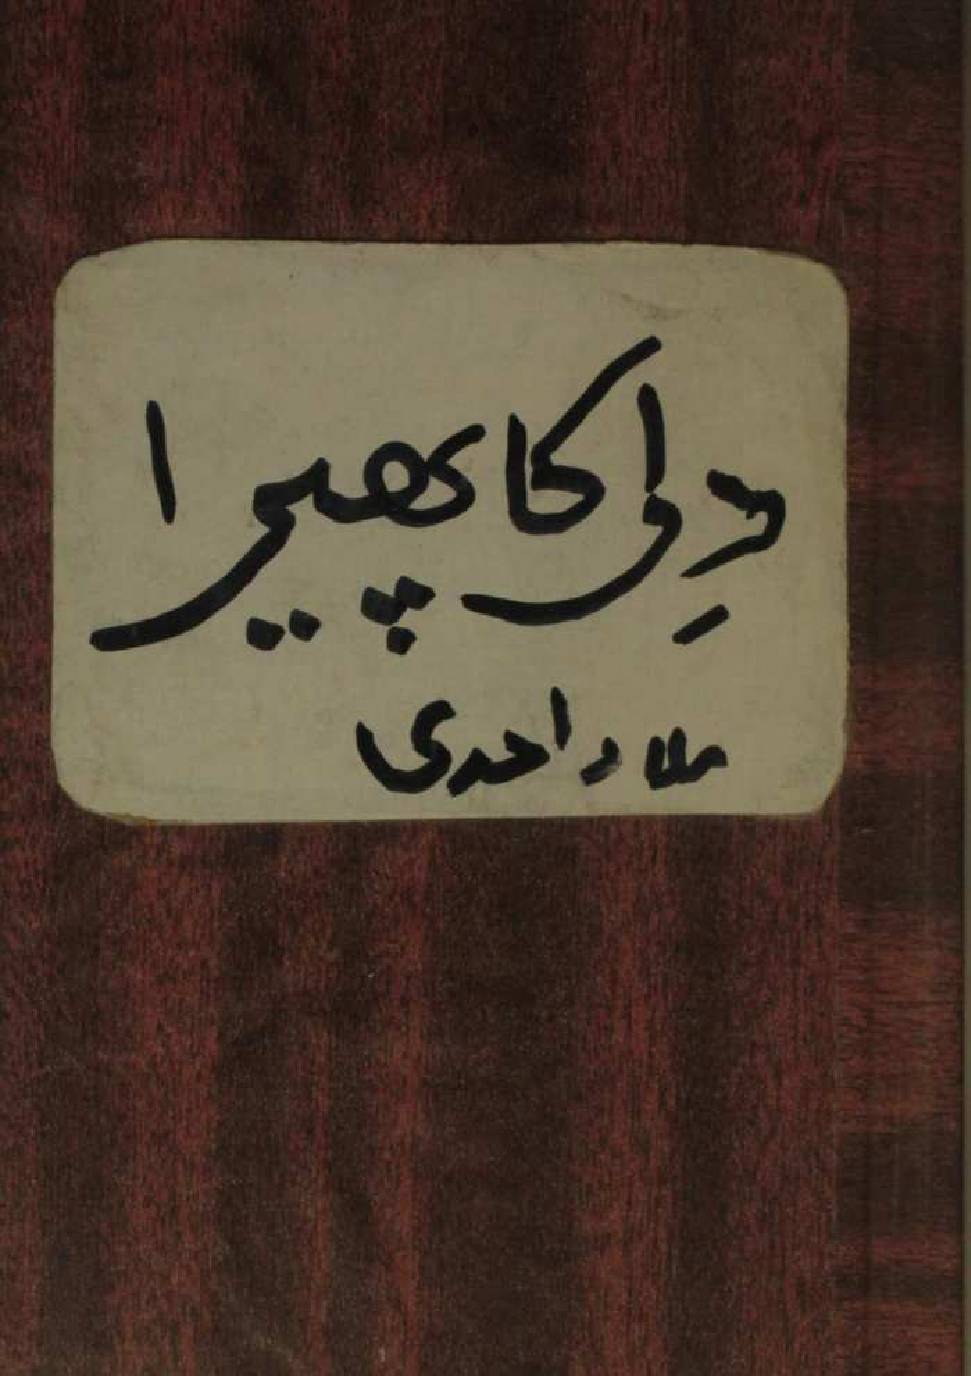 دِلی کا پھیرا
ملا واحدی